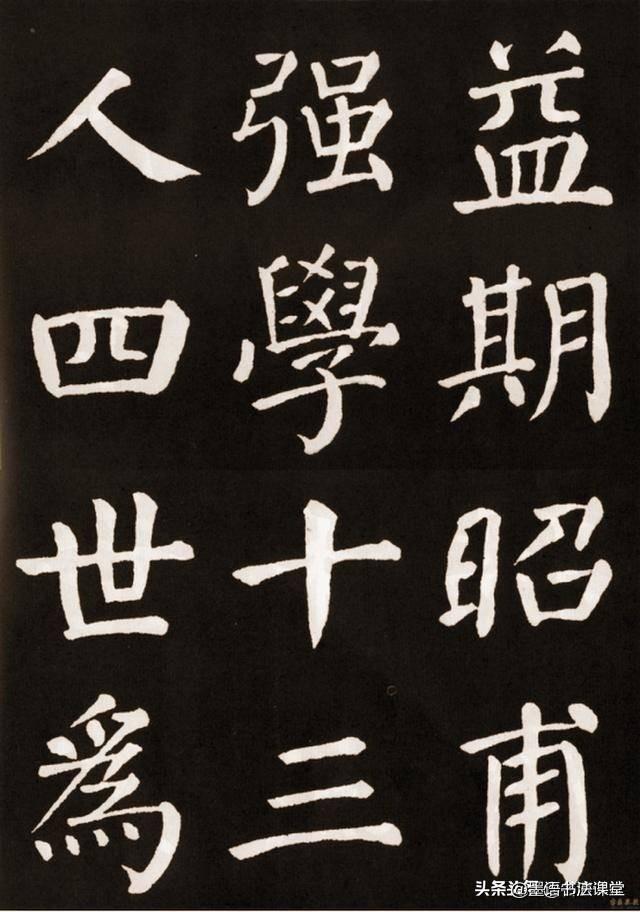 益期昭甫
强學十三
人四世爲
头条 @墨语书法课堂